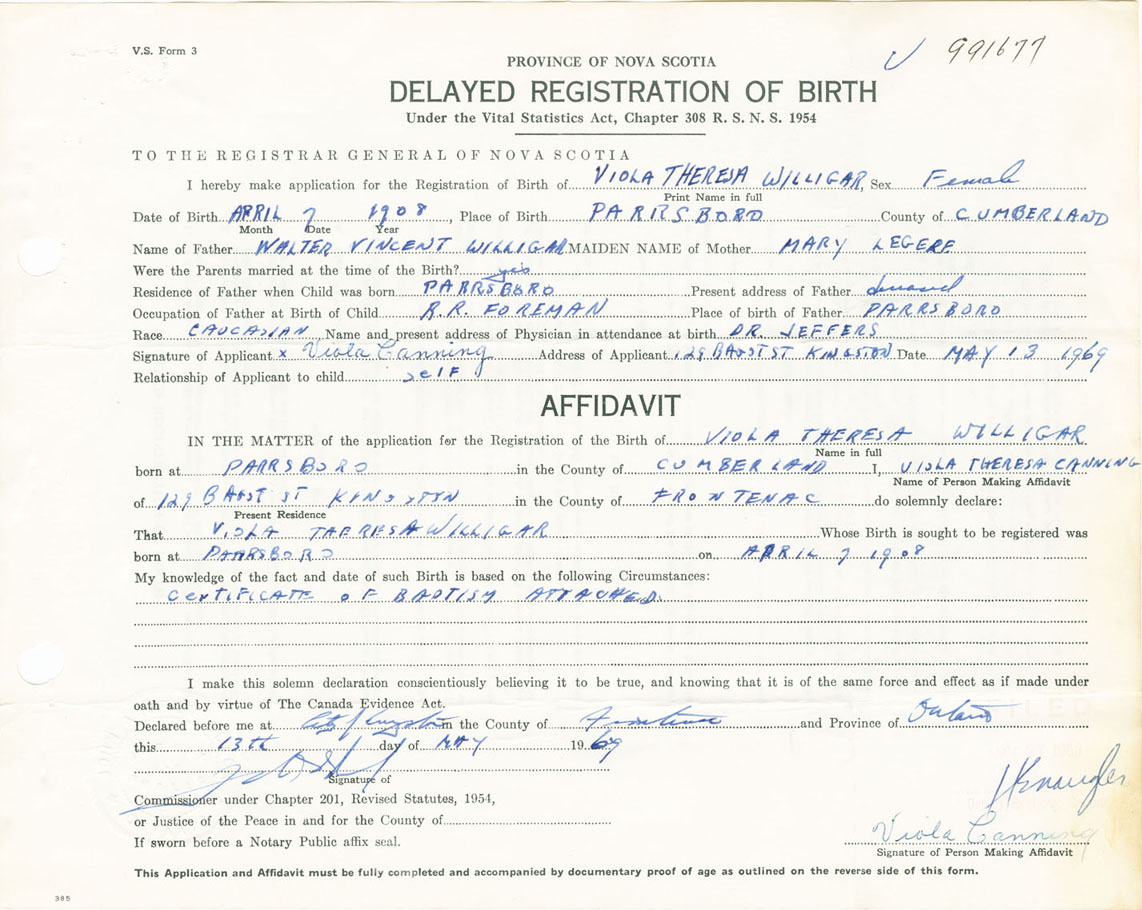 V.S. Form 3
991677
PROVINCE OF NOVA SCOTIA
DELAYED REGISTRATION OF BIRTH
Under the Vital Statistics Act, Chapter 308 R. S. N. S. 1954
TO THE REGISTRAR GENERAL OF NOVA SCOTIA
I hereby make application for the Registration of Birth of VIOLA THERESA WILLIGAR, Sex Female
Print Name in full
Date of Birth APRIL 7 1908, Place of Birth PARRSBORO County of CUMBERLAND
Month Date Year
Name of Father WALTER VINCENT WILLIGAR MAIDEN NAME of Mother MARY LEGERE
Were the Parents married at the time of the Birth? yes
Residence of Father when Child was born PARRSBORO Present address of Father deceased
Occupation of Father at Birth of Child R.R. FOREMAN Place of birth of Father PARRSBORO
Race CAUCASIAN Name and present address of Physician in attendance at birth DR. JEFFERS
Signature of Applicant x Viola Canning Address of Applicant 129 ST KINGSTON Date MAY 13 1969
Relationship of Applicant to child self
AFFIDAVIT
IN THE MATTER of the application for the Registration of the Birth of VIOLA THERESA WILLIGAR
Name in full
born at PARRSBORO in the County of CUMBERLAND I, VIOLA THERESA CANNING
Name of Person Making Affidavit
of 129 ST KINGSTON in the County of FRONTENAC do solemnly declare:
Present Residence
That VIOLA THERESA WILLIGAR Whose Birth is sought to be registered was
born at PARRSBORO on APRIL 7 1908
My knowledge of the fact and date of such Birth is based on the following Circumstances:
CERTIFICATE OF BAPTISM ATTACHED.
I make this solemn declaration conscientiously believing it to be true, and knowing that it is of the same force and effect as if made under
oath and by virtue of The Canada Evidence Act.
Declared before me at City of Kingston in the County of Frontenac and Province of Ontario
this 13th day of MAY 1969
Signature of
Commissioner under Chapter 201, Revised Statutes, 1954,
or Justice of the Peace in and for the County of
If sworn before a Notary Public affix seal.
Viola Canning
Signature of Person Making Affidavit
This Application and Affidavit must be fully completed and accompanied by documentary proof of age as outlined on the reverse side of this form.
385